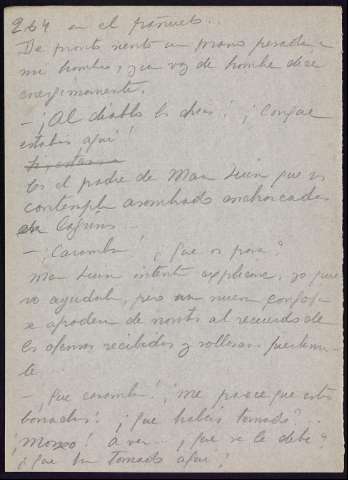 264 en el pañuelo...
De pronto siento una mano pesada en
mi hombro, y una voz de hombre dice
energicamente.
- ¡Al diablo los chicos! ¡Conque
estabais aquí!
Es el padre de Man Luin que nos
contempla asombrado anchorcados
en lágrimas...
- ¡Caramba! ¿Que os pasa?
Man Luin intenta explicarse, yo quiero
ayudarle, pero una nueva congoja
se apodera de nosotros al recuerdo de
las ofensas recibidas y sollozamos fuertemen-
te...
- ¡Que caramba! ¡Me parece que estais
borrachos! ¿Que habeis tomado?...
¡Mozo! A ver... ¿que se le debe?
¿Que han tomado aquí?